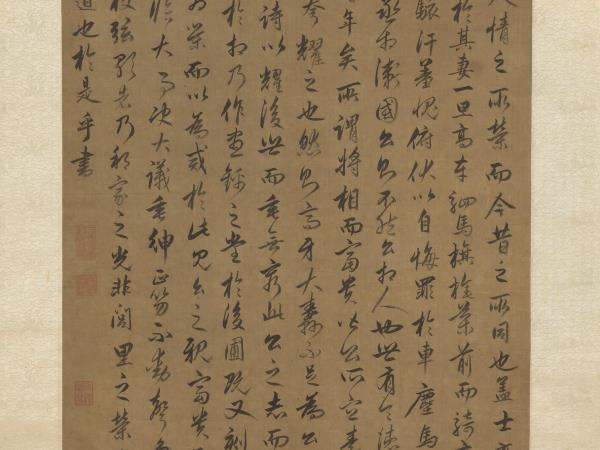 人情之所榮而今昔之所同也蓋士
於其妻一旦高車駟馬旗旄導前而騎
駭汗羞愧俯伏以自悔罪於車塵馬
丞相衛國公則不然公相人也世有令德
年矣所謂將相而富貴皆公所宜素
夸耀之也然則高牙大纛不足為公
詩以耀後世而垂無窮此公之志而
於相乃作晝錦之堂於後圃既又刻
為榮而以為戒於此見公之視富貴
臨大事決大議垂紳正笏不動聲
被弦歌者乃邦家之光非閭里之榮
道也於是乎書